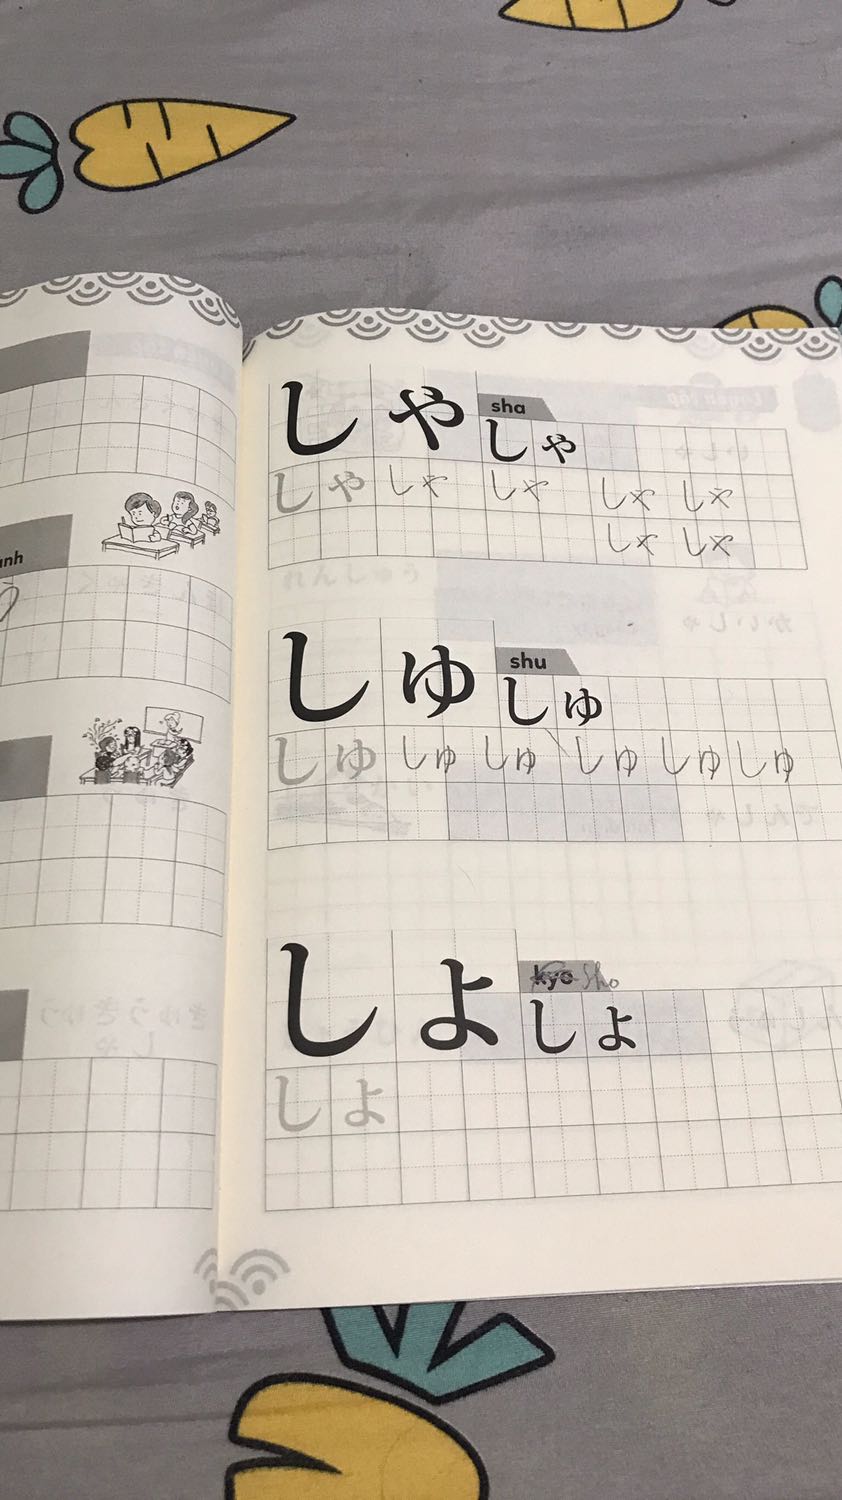 anh
しゃ sha
しゃ
しゃ しゃ しゃ しゃ しゃ
しゃ しゃ
しゅ shu
しゅ
しゅ しゅ しゅ しゅ しゅ しゅ
しょ kyo Sho
しょ
しょ